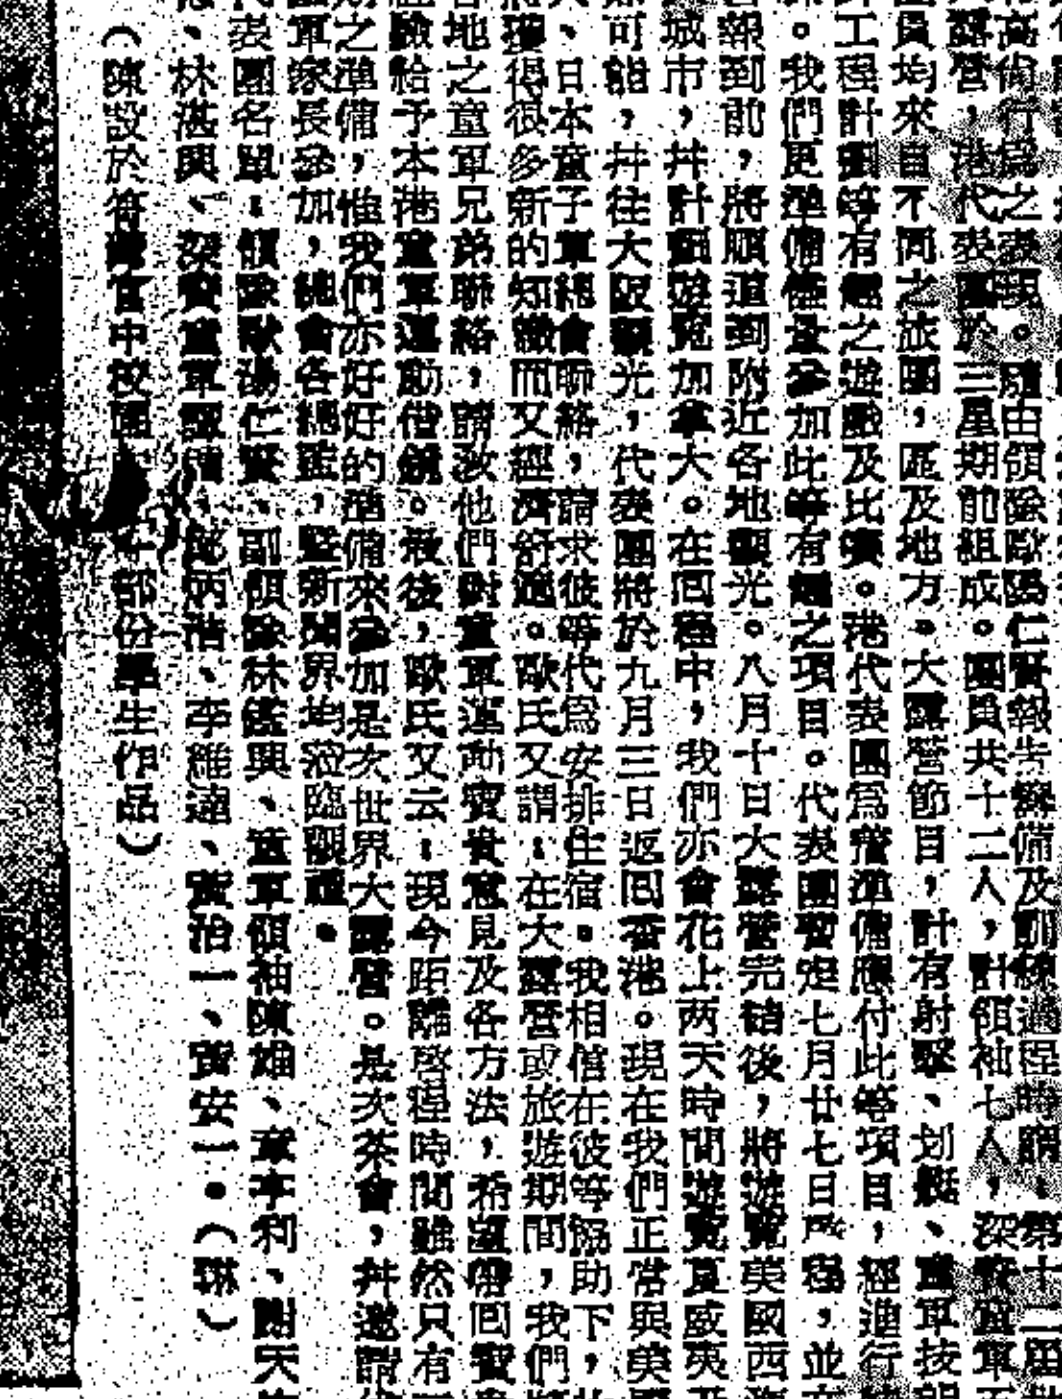 高尚行爲之表現。隨由領隊歐陽仁賢報告籌備及訓練過程時謂:第十二屆
露營,港代表團於三星期前組成。團員共十二人,計領袖七人,深資童軍
團員均來自不同之旅團,區及地方。大露營節目,計有射擊、划艇、童軍技
工程計劃等有趣之遊戲及比賽。港代表團爲着準備應付此等項目,經進行
。我們更準備儘量參加此等有趣之項目。代表團暫定七月廿七日啓程,並
報到前,將順道到附近各地觀光。八月十日大露營完結後,將遊覽美國西
城市,幷計劃遊覽加拿大。在囘程中,我們亦會花上两天時間遊覽夏威夷
可能,幷往大阪觀光,代表團將於九月三日返囘香港。現在我們正常與美
、日本童子軍總會聯絡,請求彼等代爲安排住宿。我相信在彼等協助下,
獲得很多新的知識而又經濟舒適。歐氏又謂:在大露營或旅遊期間,我們
地之童軍兄弟聯絡,請敎他們對童軍運動寳貴意見及各方法,希望帶囘寳
驗給予本港童軍運動借鏡。最後,歐氏又云:現今距離啓程時間雖然只有
之準備,惟我們亦好好的準備來參加是次世界大露營。是次茶會,幷邀請
軍家長參加,總會各總監,暨新聞界均蒞臨觀禮。
表團名單:領隊歐陽仁賢、副領隊林鑑興、童軍領袖陳雄、章亭利、謝天
、林湛興、深資童軍譚 、 炳浩、李維達、 治一、 安一。(琳)
(陳設於符 官中校 部份學生作品)